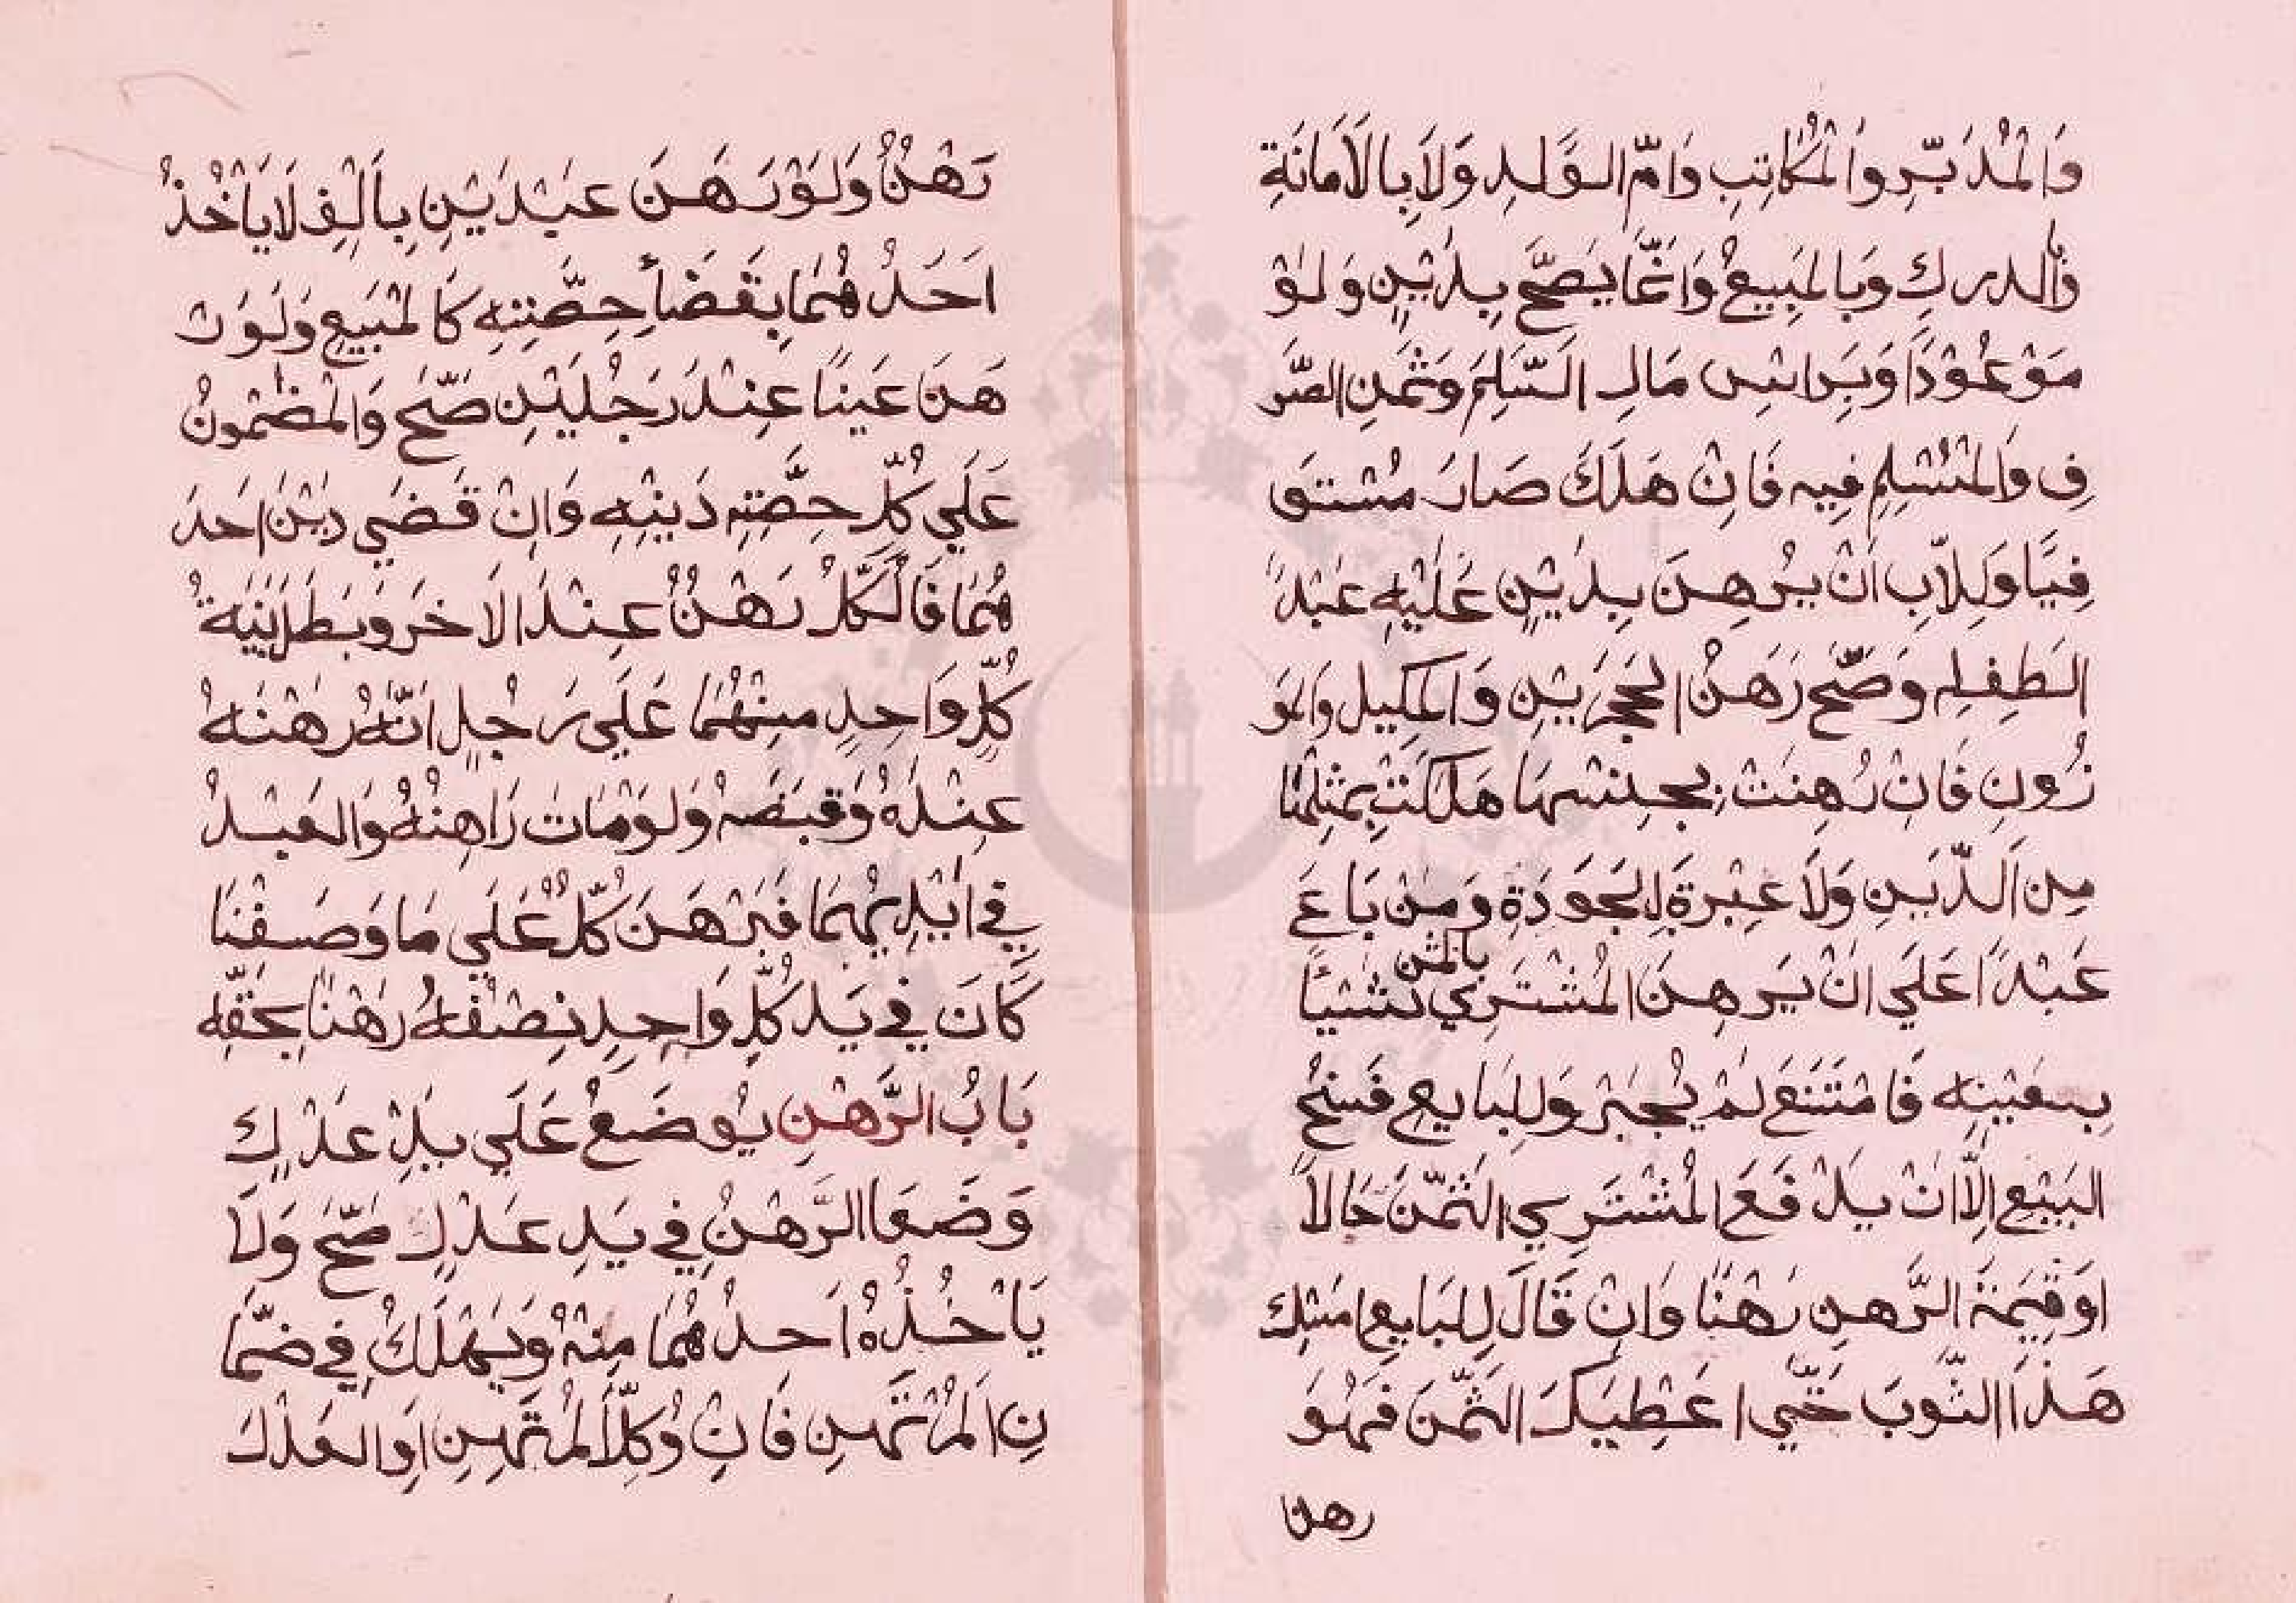 وَالْمُدَبَّرِ وَالْمُكَاتِبِ وَاُمِّ الْوَلَدِ وَلَا بِالْاَمَانَةِ
وَالدركِ وَبِالمَبِيعِ وَاِنَّمَا يَصِحُّ بِدَيْنٍ وَلَوْ
مَوْعُوْدًا وَبِرَاسِ مَالِ السَّلَمِ وَثَمَنِ الصَّر
فِ وَالْمُسْلَمِ فِيه فَاِنْ هَلَكَ صَارَ مُسْتَو
فِيًا وَلِلْاَبِ اَنْ يَرْهِنَ بِدَيْنٍ عَلَيْهِ عَبْدًا
لطِفْلِه وَصَحَّ رَهْنُ الحَجَرَيْنِ وَالمَكِيلِ وَالمَو
زُونِ فَاِنْ رُهِنَتْ بِجِنْسِهَا هَلَكَتْ بِمِثْلِهَا
مِن الدَّيْنِ وَلَا عِبْرَةَ لِلجَوْدَةِ وَمَنْ بَاعَ
عَبْدًا عَلَي اَنْ يَرهِنَ الْمُشْتَرِي بالثمن شَيْئًا
بِعَيْنِه فَامْتَنَعَ لَمْ يُجْبَرْ وَلِلبَايِعِ فَسْخُ
البَيْعِ اِلَّا اَنْ يَدْفَعَ الْمُشْتَرِي الثَّمَنَ حَالًا
اَوْ قِيمَةَ الرَّهنِ رَهْنًا وَاِنْ قَالَ لِلبَايِعِ امسِك
هَذَا الثَّوبَ حَتَّي اعْطِيَكَ الثَّمَنَ فَهُوَ
رهن
رَهْنٌ وَلَوْ رَهَنَ عَبْدَيْنِ بِاَلْفٍ لَا يَاْخُذُ
اَحَدَهُمَا بِقَضَاءِ حِصَّتِهِ كَالمَبِيعِ وَلَو رَ
هَنَ عَيْنًا عِنْدَ رَجُلَيْنِ صَحَّ وَالمَضْمُونُ
عَلَي كُلٍّ حِصَّةِ دَيْنِهِ وَاِنْ قَضَي دَيْنَ احَد
هُمَا فَالكُلُّ رَهْنٌ عِنْدَ الاخَرِ وَبَطَلَ بَيِّنَةُ
كُلِّ وَاحِدٍ مِنْهُمَا عَلَي رَجُلٍ اَنَّهُ رَهَنَهُ
عِنْدَهُ وَقَبَضَهُ وَلَوْ مَاتَ رَاهِنُهُ وَالعَبْدُ
فِي اَيْدِيهِمَا فَبَرْهَنَ كُلٌّ عَلَي مَا وَصَفْنَا
كَانَ فِي يَدِ كُلِّ وَاحِدٍ نِصْفُهُ رَهْنًا بِحَقِّه
بَابُ الرَّهْنِ يُوضَعُ عَلَي يَدِ عَدْلٍ
وَضَعَا الرَّهْنَ فِي يَدِ عَدْلٍ صَحَّ وَلَا
يَاْخُذُهُ اَحَدُهُمَا مِنْهُ وَيَهْلَكُ فِي ضَمَا
نِ المُرْتَهِنِ فَاِنْ وَكَّلَ المُرْتَهِنِ اَوِ العَدْلَ